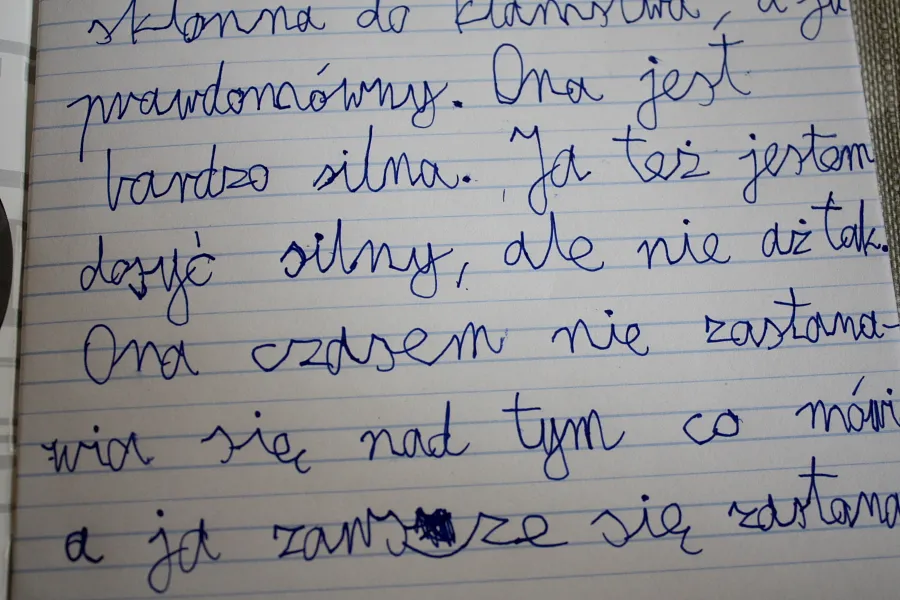 skłonna do kłamstwa, a ja
prawdomówny. Ona jest
bardzo silna. Ja też jestem
dosyć silny, ale nie aż tak.
Ona czasem nie zastana-
wia się nad tym co mówi
a ja zawsze się zastana